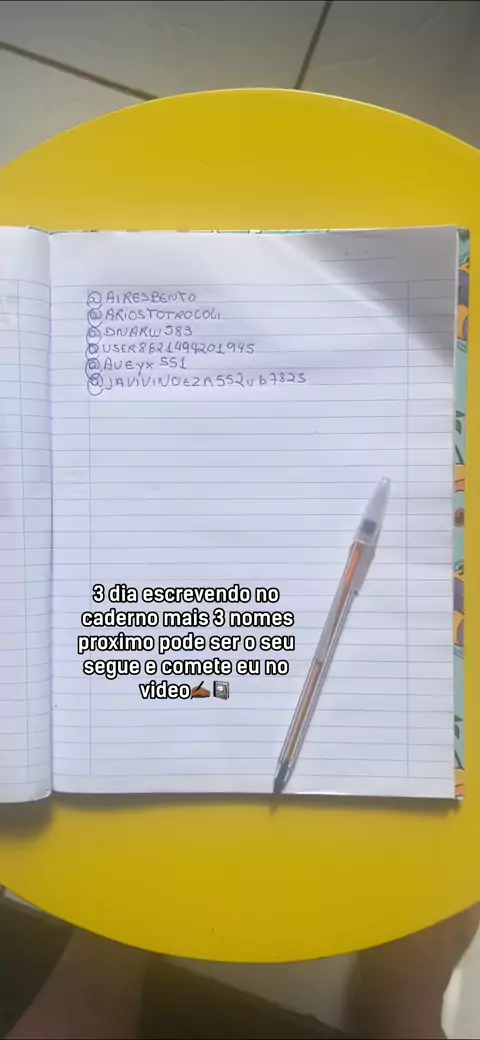 @AIRESBENTO
@ARIOSTOTROCOLI
@DNARW583
@USER8621494201945
@AUEYX551
@JAVIVINOEZA552Ub7825
3 dia escrevendo no
caderno mais 3 nomes
proximo pode ser o seu
segue e comete eu no
video✍🏾📓